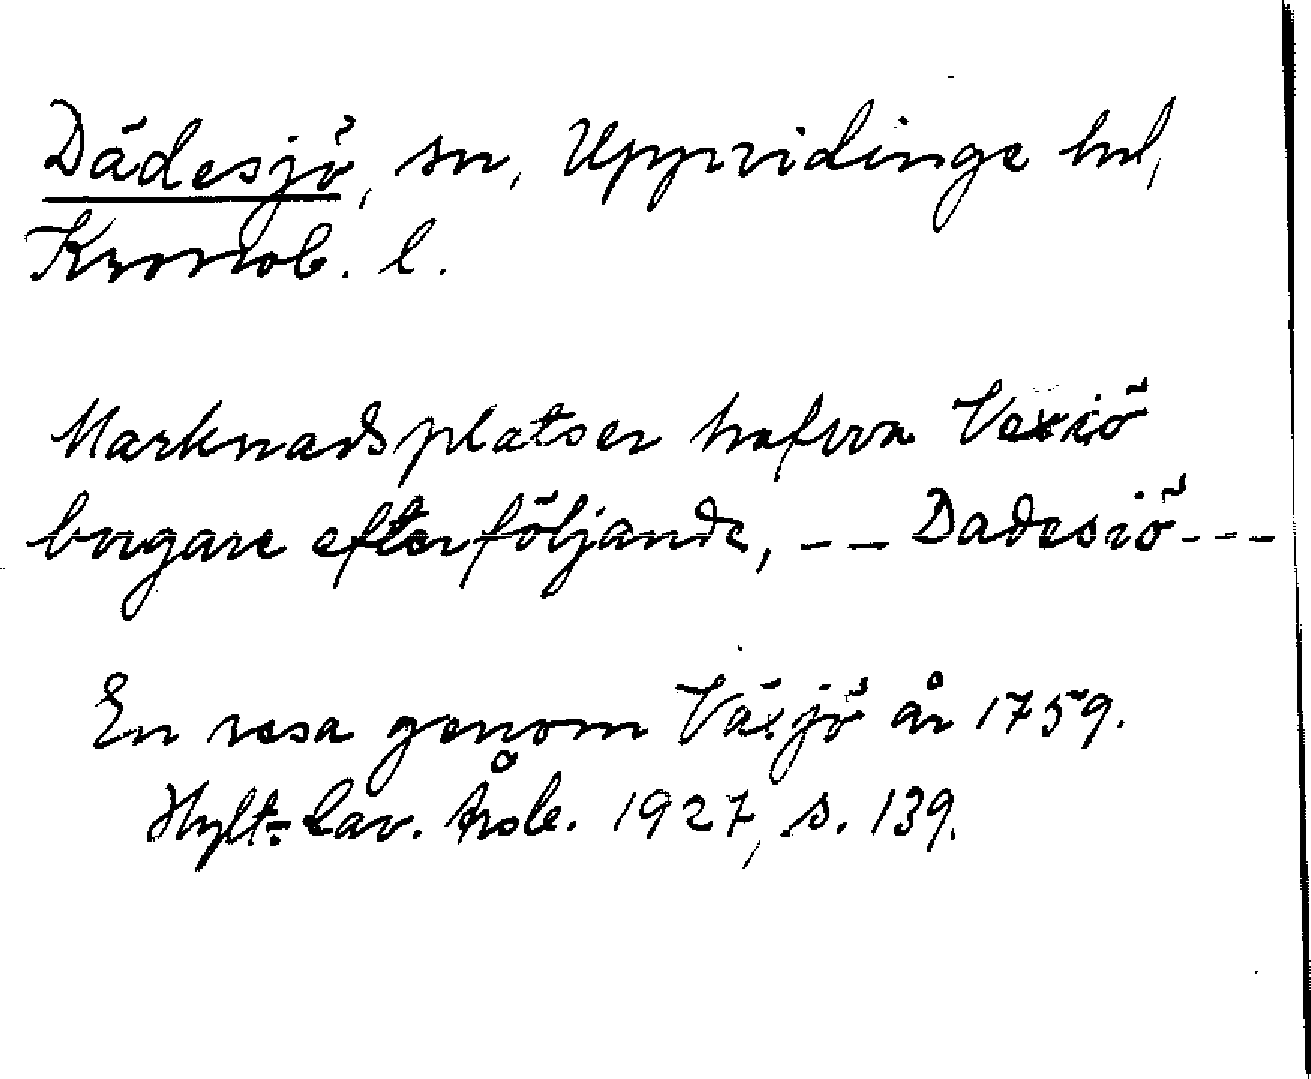 Dädesjö, sn, Uppvidinge hd,
Kronob. l.
Marknadsplatser hafva Vexiö
borgare efterföljande, -- Dadesiö ---
En resa genom Växjö år 1759.
Hylt-Cav. Årsb. 1927, s. 139.